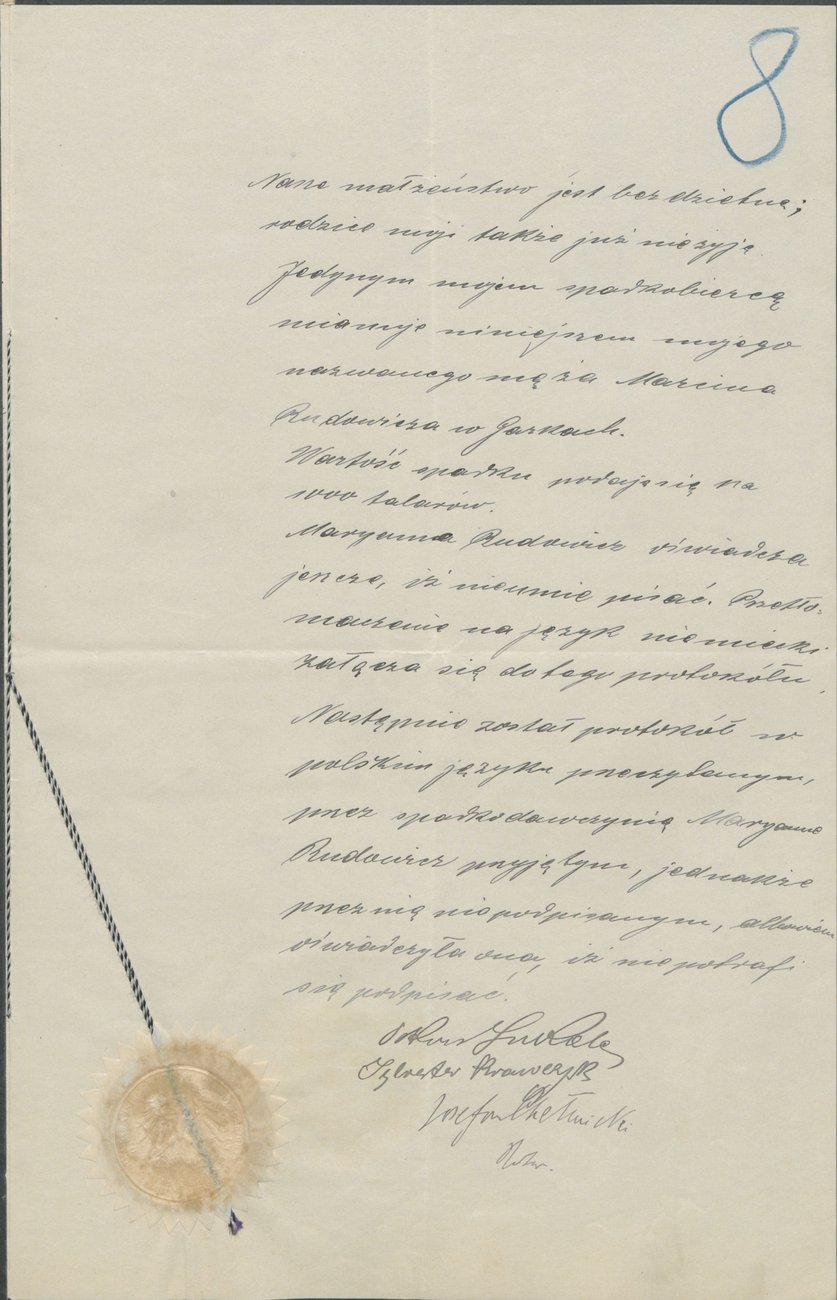 8
Nasze małżeństwo jest bezdzietne;
rodzice moji także już nieżyją.
Jedynym mojem spadkobiercą
mianuję niniejszem mojego
nazwanego męża Marcina
Rudowicza w Garkach.
Wartość spadku podaję się na
1000 talarów.
Maryanna Rudowicz oświadcza
jeszcze, iż nieumie pisać. Przetło-
maczenie na język niemiecki
załącza się do tego protokółu,
Następnie został protokół w
polskim języku przeczytanym,
przez spadkodawczynią Maryannę
Rudowicz przyjętym, jednakże
przez nią niepodpisanym, albowiem
oświadczyła ona, iż niepotrafi
się podpisać.
Sylvester Krawczyk
Josef Chełmicki